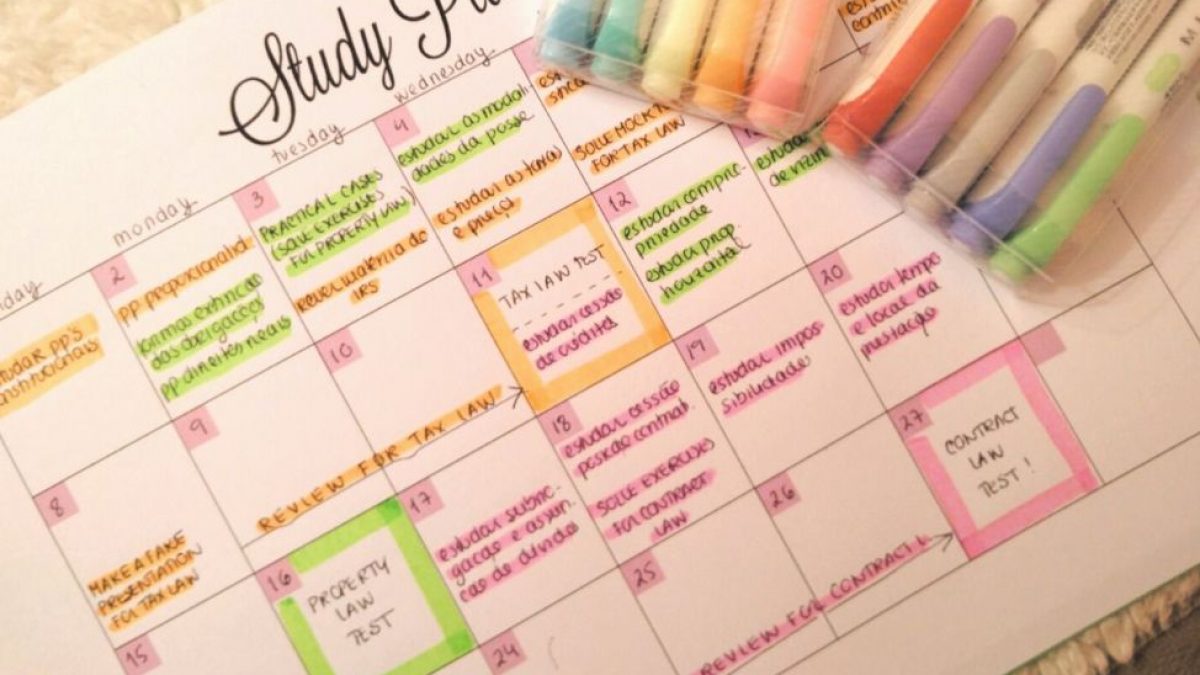 Study
monday
tuesday
wednesday
2
pp proporcionalid
formas extinção
das obrigações
pp direitos reais
3
PRACTICAL CASES
(SOLVE EXERCISES
FOR PROPERTY LAW)
IRS
4
estudar as modali-
dades da posse
estudar as taxas
e preço
SOLVE MOCK
FOR TAX LAW
estudar PP's
8
MAKE A FAKE
PRESENTATION
FOR TAX LAW
9
10
REVIEW FOR TAX LAW
11
TAX LAW TEST
estudar cessão
de créditos
12
estudar compro-
priedade
estudar prop
horizontal
estudar
15
16
PROPERTY
LAW
TEST
17
estudar subro-
gação e assun-
ção de dívidas
18
estudar cessão
posição contrat.
SOLVE EXERCISES
FOR CONTRACT
LAW
19
estudar impos-
sibilidade
20
estudar tempo
e local da
prestação
24
25
26
REVIEW FOR CONTRACT L
27
CONTRACT
LAW
TEST!